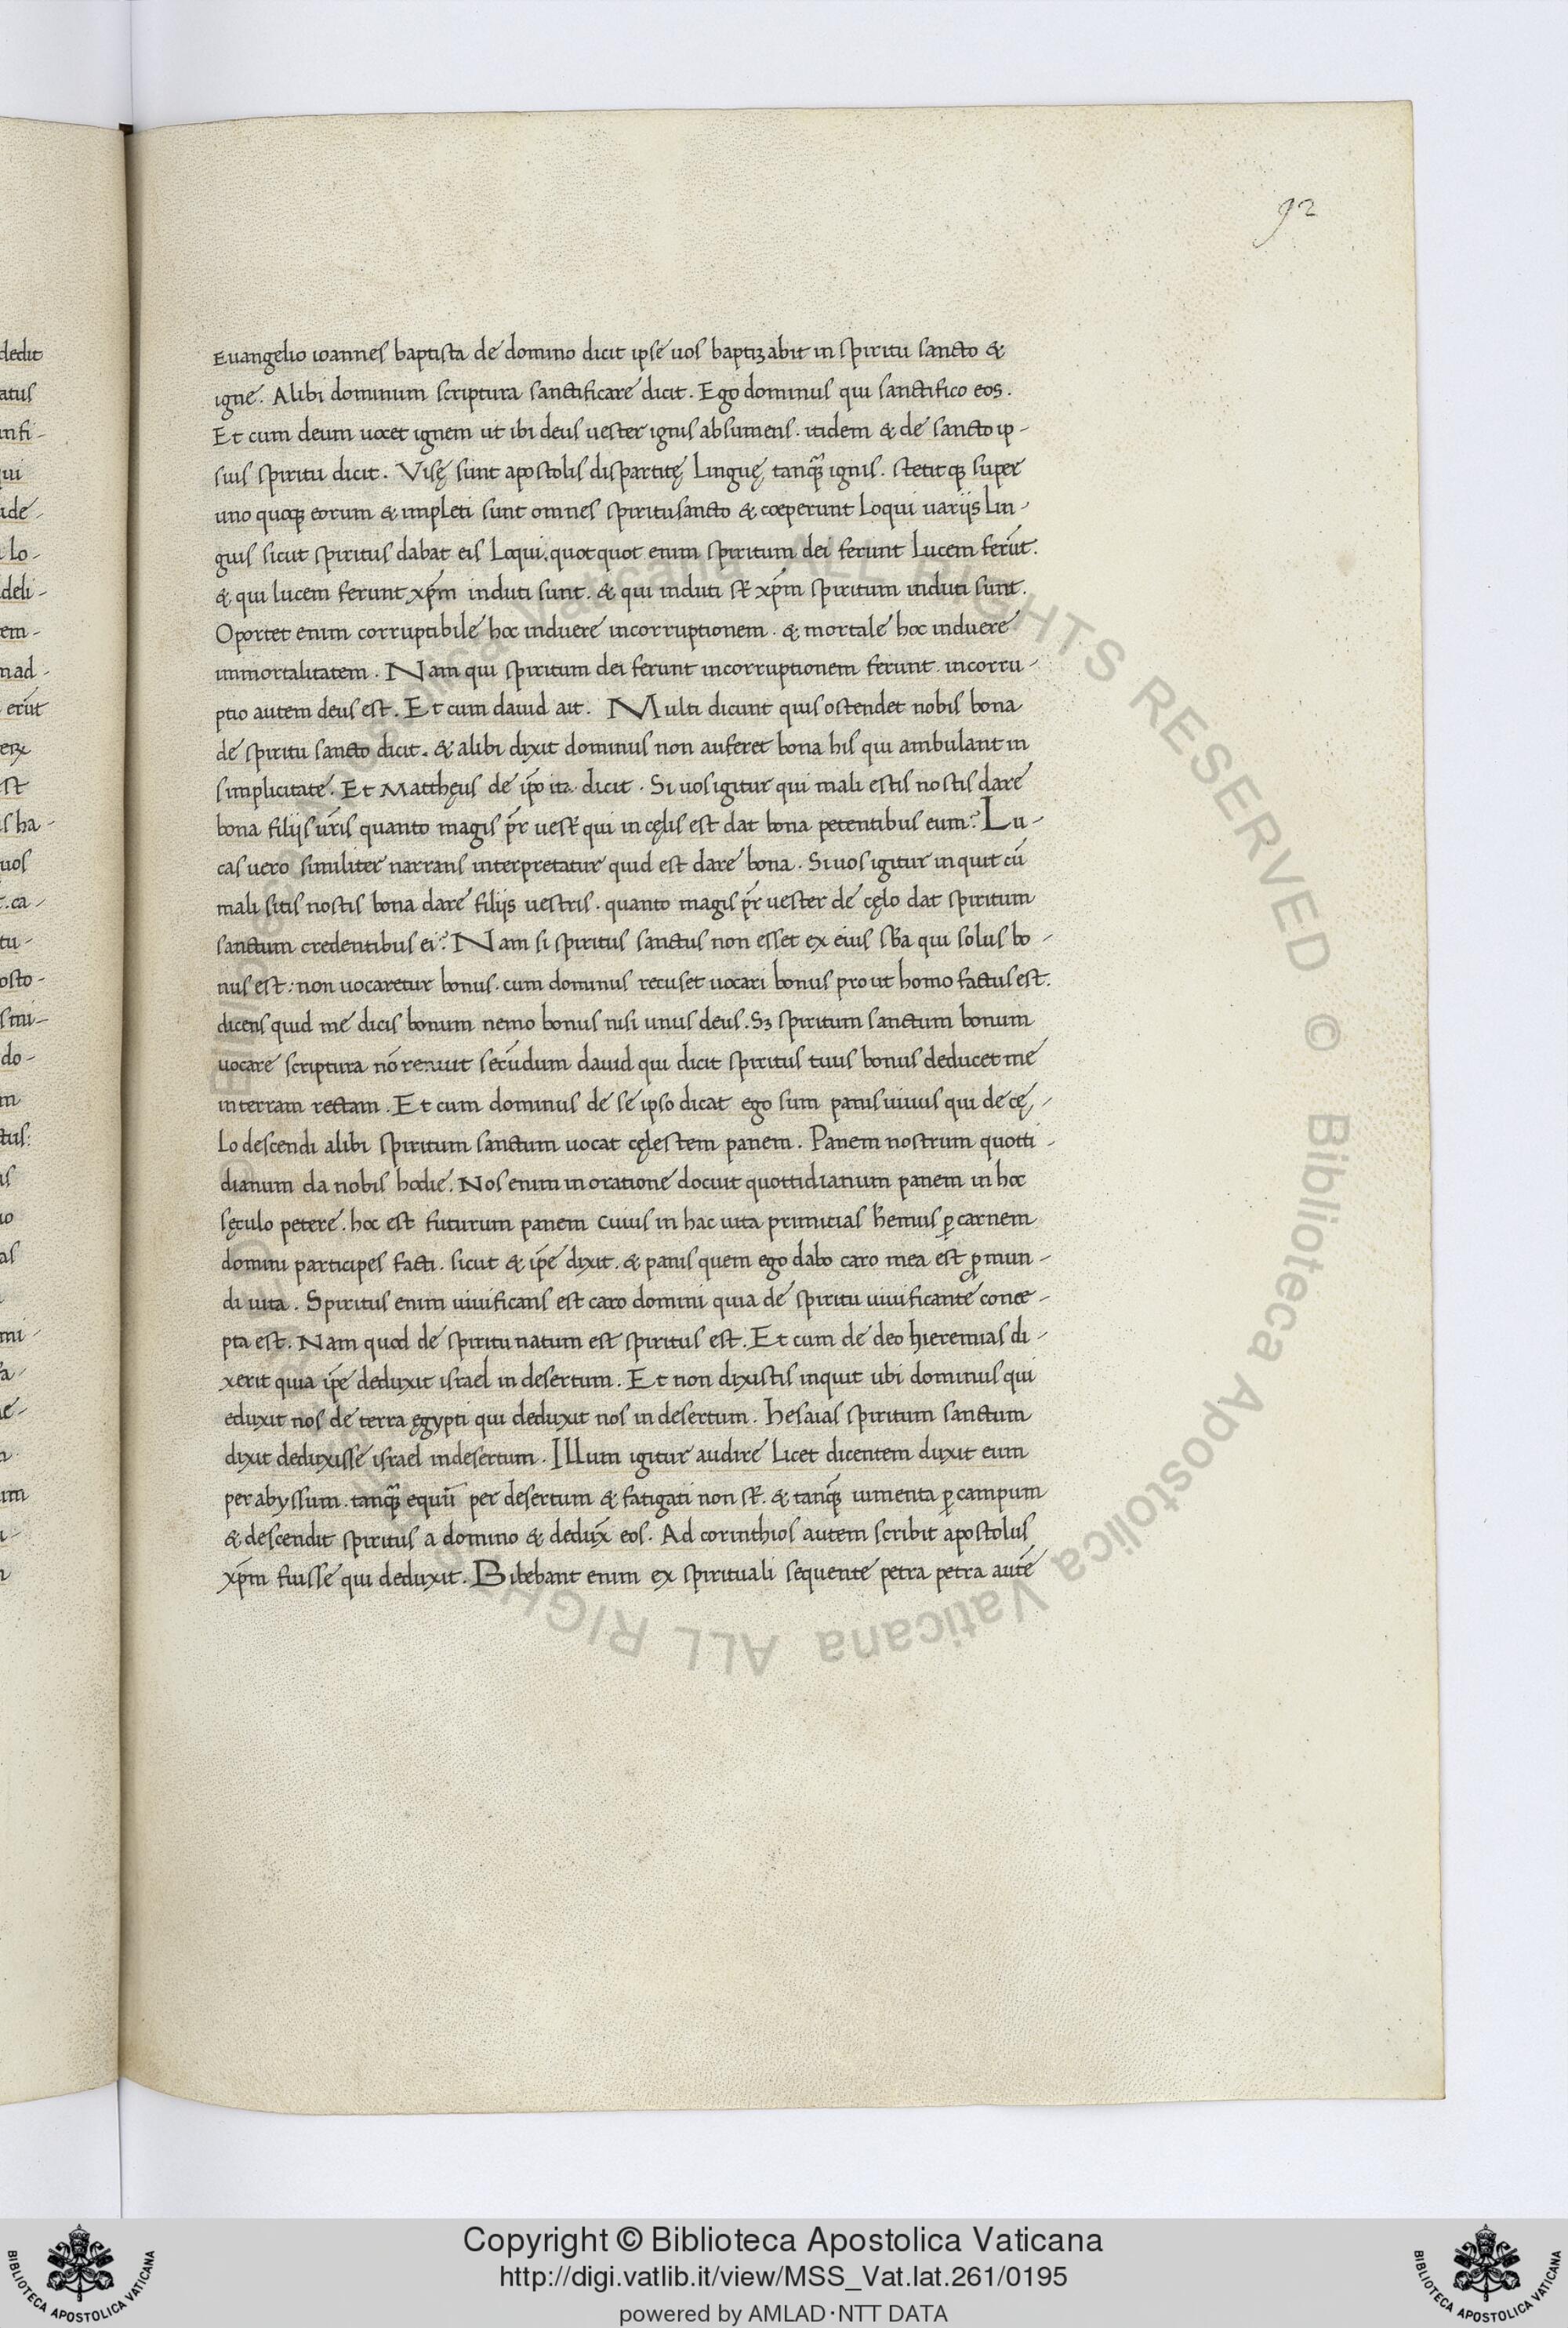 92
Euangelio ioannes baptista de domino dicit ipse uos baptizabit in spiritu sancto &
igne. Alibi dominum scriptura sanctificare dicit. Ego dominus qui sanctifico eos.
Et cum deum uocet ignem ut ibi deus uester ignis absumens. itidem & de sancto ip-
sius spiritu dicit. Visę sunt apostolis dispartitę Linguę tanq̃ ignis. stetitq; super
uno quoq; eorum & impleti sunt omnes spiritusancto & cœperunt Loqui uariis Lin-
guis sicut spiritus dabat eis Loqui. quotquot enim spiritum dei ferunt Lucem ferūt.
& qui lucem ferunt xp̄m induti sunt. & qui induti st̄ xp̄m spiritum induti sunt.
Oportet enim corruptibile hoc induere incorruptionem. & mortale hoc induere
immortalitatem. Nam qui spiritum dei ferunt incorruptionem ferunt. incorru-
ptio autem deus est. Et cum dauid ait. Multi dicunt quis ostendet nobis bona
de spiritu sancto dicit. & alibi dixit dominus non auferet bona his qui ambulant in
simplicitate. Et Matthęus de ip̄o ita dicit. Si uos igitur qui mali estis nostis dare
bona filijs ur̄is quanto magis pr̄ uestr̄ qui in cęlis est dat bona petentibus eum? Lu-
cas uero similiter narrans interpretatur quid est dare bona. Si uos igitur inquit cū
mali sitis nostis bona dare filijs uestris. quanto magis pr̄ uester de cęlo dat spiritum
sanctum credentibus ei? Nam si spiritus sanctus non esset ex eius sb̄a qui solus bo-
nus est: non uocaretur bonus. cum dominus recuset uocari bonus prout homo factus est.
dicens quid me dicis bonum nemo bonus nisi unus deus. Sz spiritum sanctum bonum
uocare scriptura nō renuit secūdum dauid qui dicit spiritus tuus bonus deducet me
in terram rectam. Et cum dominus de se ipso dicat ego sum panis uiuus qui de cę-
Lo descendi alibi spiritum sanctum uocat cęlestem panem. Panem nostrum quotti-
dianum da nobis hodie. Nos enim in oratione docuit quottidianum panem in hoc
sęculo petere. hoc est futurum panem cuius in hac uita primitias hēmus p̱ carnem
domini participes facti. sicut & ip̄e dixit. & panis quem ego dabo caro mea est ꝓ mun-
di uita. Spiritus enim uiuificans est caro domini quia de spiritu uiuificante conce-
pta est. Nam quod de spiritu natum est spiritus est. Et cum de deo hieremias di-
xerit quia ip̄e deduxit israel in desertum. Et non dixistis inquit ubi dominus qui
eduxit nos de terra ęgypti qui deduxit nos in desertum. hesaias spiritum sanctum
dixit deduxisse israel indesertum. Illum igitur audire Licet dicentem duxit eum
per abyssum. tanq̃ equū per desertum & fatigati non st̄. & tanq̃ iumenta p̱ campum
& descendit spiritus a domino & dedux̄ eos. Ad corinthios autem scribit apostolus
xp̄m fuisse qui deduxit. Bibebant enim ex spirituali sequente petra petra autē
Copyright © Biblioteca Apostolica Vaticana
http://digi.vatlib.it/view/MSS_Vat.lat.261/0195
powered by AMLAD·NTT DATA